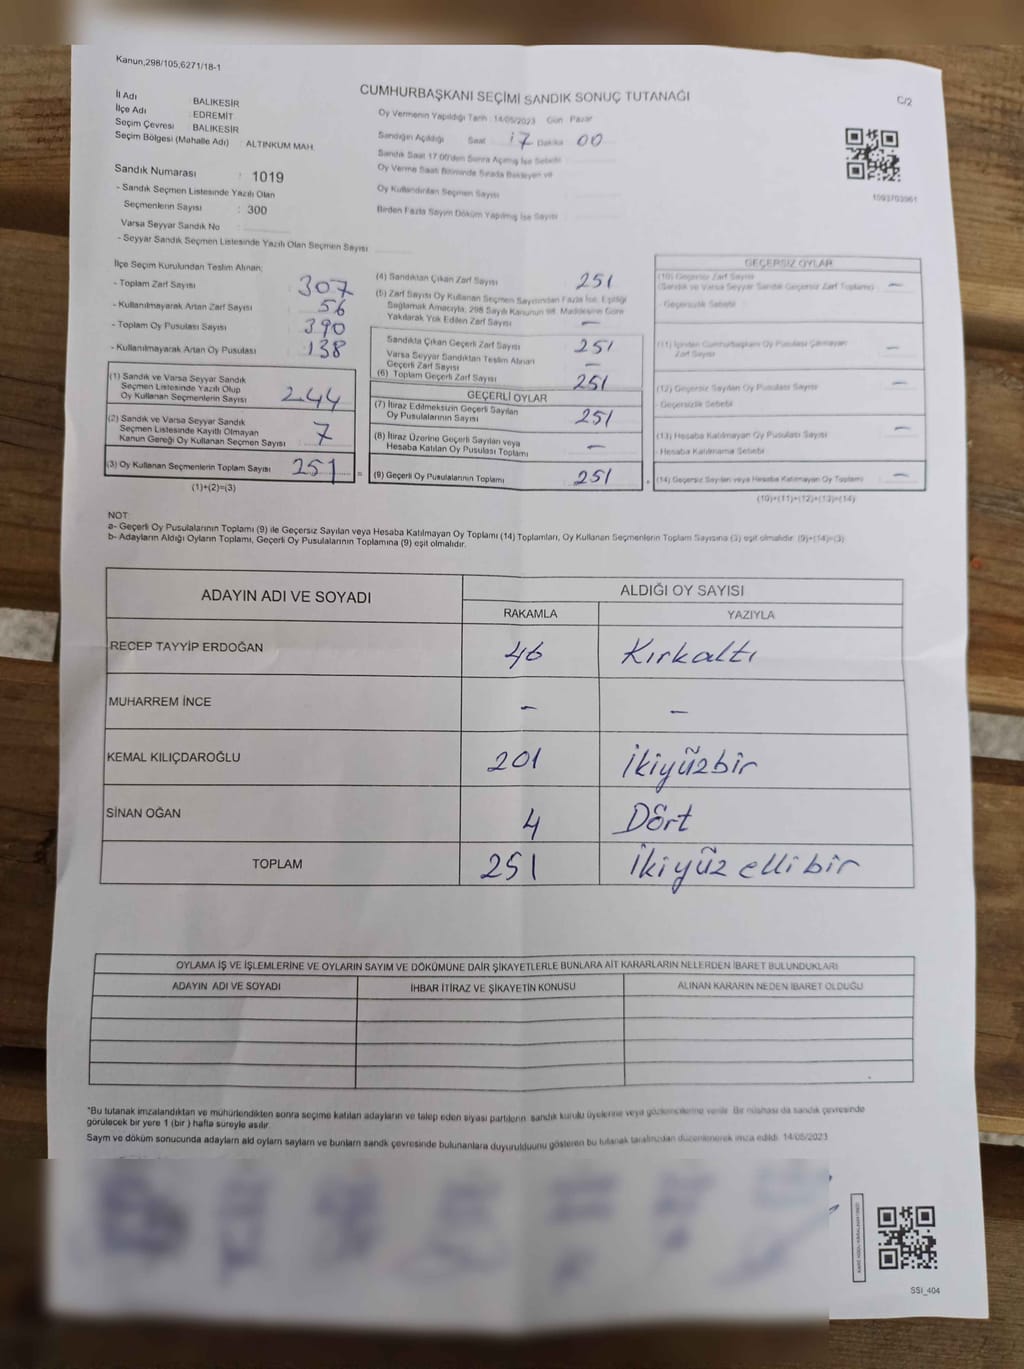 Kanun,298/105,6271/18-1
CUMHURBAŞKANI SEÇİMİ SANDIK SONUÇ TUTANAĞI
C/2
İl Adı : BALIKESİR
İlçe Adı : EDREMİT
Seçim Çevresi : BALIKESİR
Seçim Bölgesi (Mahalle Adı) : ALTINKUM MAH.
Oy Vermenin Yapıldığı Tarih : 14/05/2023 Gün Pazar
Sandığın Açıldığı Saat 17 Dakika 00
Sandık Saat 17.00'den Sonra Açılmış İse Sebebi
Oy Verme Saati Bitiminde Sırada Bekleyen ve
Oy Kullandırılan Seçmen Sayısı
Birden Fazla Sayım Döküm Yapılmış İse Sayısı
Sandık Numarası : 1019
- Sandık Seçmen Listesinde Yazılı Olan
Seçmenlerin Sayısı : 300
Varsa Seyyar Sandık No
- Seyyar Sandık Seçmen Listesinde Yazılı Olan Seçmen Sayısı
İlçe Seçim Kurulundan Teslim Alınan;
- Toplam Zarf Sayısı 307
- Kullanılmayarak Artan Zarf Sayısı 56
- Toplam Oy Pusulası Sayısı 390
- Kullanılmayarak Artan Oy Pusulası 138
(1) Sandık ve Varsa Seyyar Sandık
Seçmen Listesinde Yazılı Olup
Oy Kullanan Seçmenlerin Sayısı 244
(2) Sandık ve Varsa Seyyar Sandık
Seçmen Listesinde Kayıtlı Olmayan
Kanun Gereği Oy Kullanan Seçmen Sayısı 7
(3) Oy Kullanan Seçmenlerin Toplam Sayısı 251
(1)+(2)=(3)
(4) Sandıktan Çıkan Zarf Sayısı 251
(5) Zarf Sayısı Oy Kullanan Seçmen Sayısından Fazla İse, Eşitliği
Sağlamak Amacıyla, 298 Sayılı Kanunun 98. Maddesine Göre
Yakılarak Yok Edilen Zarf Sayısı –
Sandıkta Çıkan Geçerli Zarf Sayısı 251
Varsa Seyyar Sandıktan Teslim Alınan
Geçerli Zarf Sayısı –
(6) Toplam Geçerli Zarf Sayısı 251
GEÇERLİ OYLAR
(7) İtiraz Edilmeksizin Geçerli Sayılan
Oy Pusulalarının Sayısı 251
(8) İtiraz Üzerine Geçerli Sayılan veya
Hesaba Katılan Oy Pusulası Toplamı –
(9) Geçerli Oy Pusulalarının Toplamı 251
GEÇERSİZ OYLAR
(10) Geçersiz Zarf Sayısı
(Sandık ve Varsa Seyyar Sandık Geçersiz Zarf Toplamı) –
- Geçersizlik Sebebi
(11) İçinden Cumhurbaşkanı Oy Pusulası Çıkmayan
Zarf Sayısı –
(12) Geçersiz Sayılan Oy Pusulası Sayısı –
- Geçersizlik Sebebi
(13) Hesaba Katılmayan Oy Pusulası Sayısı –
- Hesaba Katılmama Sebebi
(14) Geçersiz Sayılan veya Hesaba Katılmayan Oy Toplamı –
(10)+(11)+(12)+(13)=(14)
NOT:
a- Geçerli Oy Pusulalarının Toplamı (9) ile Geçersiz Sayılan veya Hesaba Katılmayan Oy Toplamı (14) Toplamları, Oy Kullanan Seçmenlerin Toplam Sayısına (3) eşit olmalıdır. (9)+(14)=(3)
b- Adayların Aldığı Oyların Toplamı, Geçerli Oy Pusulalarının Toplamına (9) eşit olmalıdır.
ADAYIN ADI VE SOYADI ALDIĞI OY SAYISI
RAKAMLA YAZIYLA
RECEP TAYYİP ERDOĞAN 46 Kırkaltı
MUHARREM İNCE – –
KEMAL KILIÇDAROĞLU 201 İkiyüzbir
SİNAN OĞAN 4 Dört
TOPLAM 251 İkiyüz elli bir
OYLAMA İŞ VE İŞLEMLERİNE VE OYLARIN SAYIM VE DÖKÜMÜNE DAİR ŞİKAYETLERLE BUNLARA AİT KARARLARIN NELERDEN İBARET BULUNDUKLARI
ADAYIN ADI VE SOYADI İHBAR İTİRAZ VE ŞİKAYETİN KONUSU ALINAN KARARIN NEDEN İBARET OLDUĞU
*Bu tutanak imzalandıktan ve mühürlendikten sonra seçime katılan adayların ve talep eden siyasi partilerin sandık kurulu üyelerine veya gözlemcilerine verilir. Bir nüshası da sandık çevresinde
görülecek bir yere 1 (bir) hafta süreyle asılır.
Sayım ve döküm sonucunda adayların aldı oyların sayları ve bunların sandık çevresinde bulunanlara duyurulduunu gösteren bu tutanak tarafımızdan düzenlenerek imza edildi. 14/05/2023
SSI_404